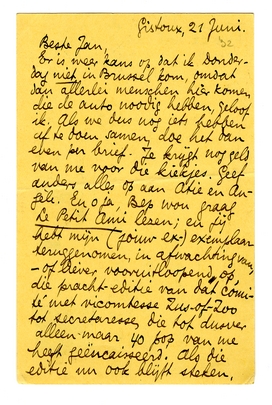 Gistoux, 21 Juni.
32
Beste Jan,
Er is weer kans op, dat ik Donder-
dag niet in Brussel kom, omdat
dan allerlei menschen hier komen
die de auto noodig hebben, geloof
ik. Als we dus nog iets hebben
af te doen samen, doe het dan
even per brief. Je krijgt nog geld
van me voor die kiekjes. Geef
anders alles op aan Atie en An-
gèle. En o ja, Bep wou graag
Le Petit Ami lezen; en jij
hebt mijn (jouw ex-) exemplaar
teruggenomen, in afwachting van,
- of liever vooruitloopend, op
die pracht-editie van dat Comi-
té met vicomtesse Zus-of-Zoo
tot secretaresse, die tot dusver
alleen maar 40 pop van me
heeft geëncaisseerd. Als die
editie nu ook blijft steken,